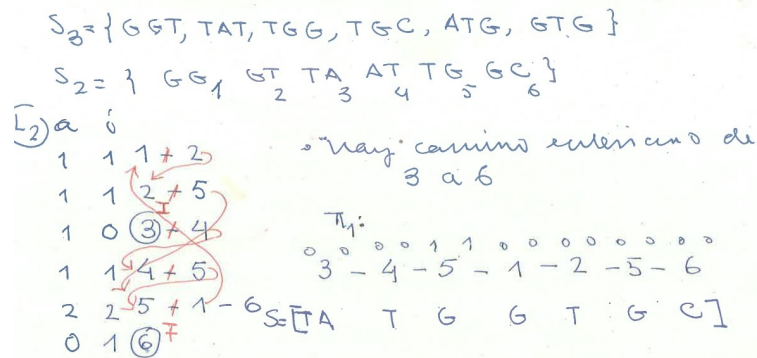 S₃={GGT, TAT, TGG, TGC, ATG, GTG}
S₂={ GG₁ GT₂ TA₃ AT₄ TG₅ GC₆ }
L₂) a i
1 1 1 + 2
1 1 2 + 5
I
1 0 3 + 4
1 1 4 + 5
2 2 5 + 1 - 6
0 1 6 F
• Hay camino euleriano de
3 a 6
π₁:
0 0 0 0 1 1 0 0 0 0 0 0 0 0
3 - 4 - 5 - 1 - 2 - 5 - 6
S=[TA T G G T G C]